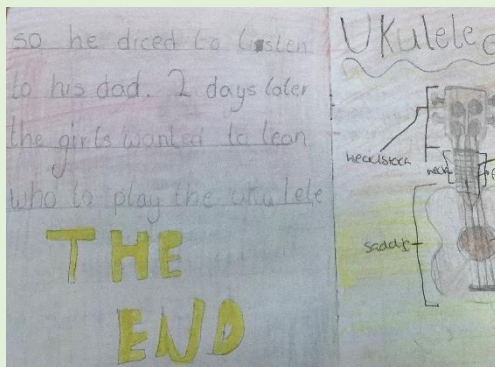 so he diced to listen
to his dad. 2 days later
the girls wanted to lean
who to play the ukulele
THE
END
Ukulele
headstock
neck